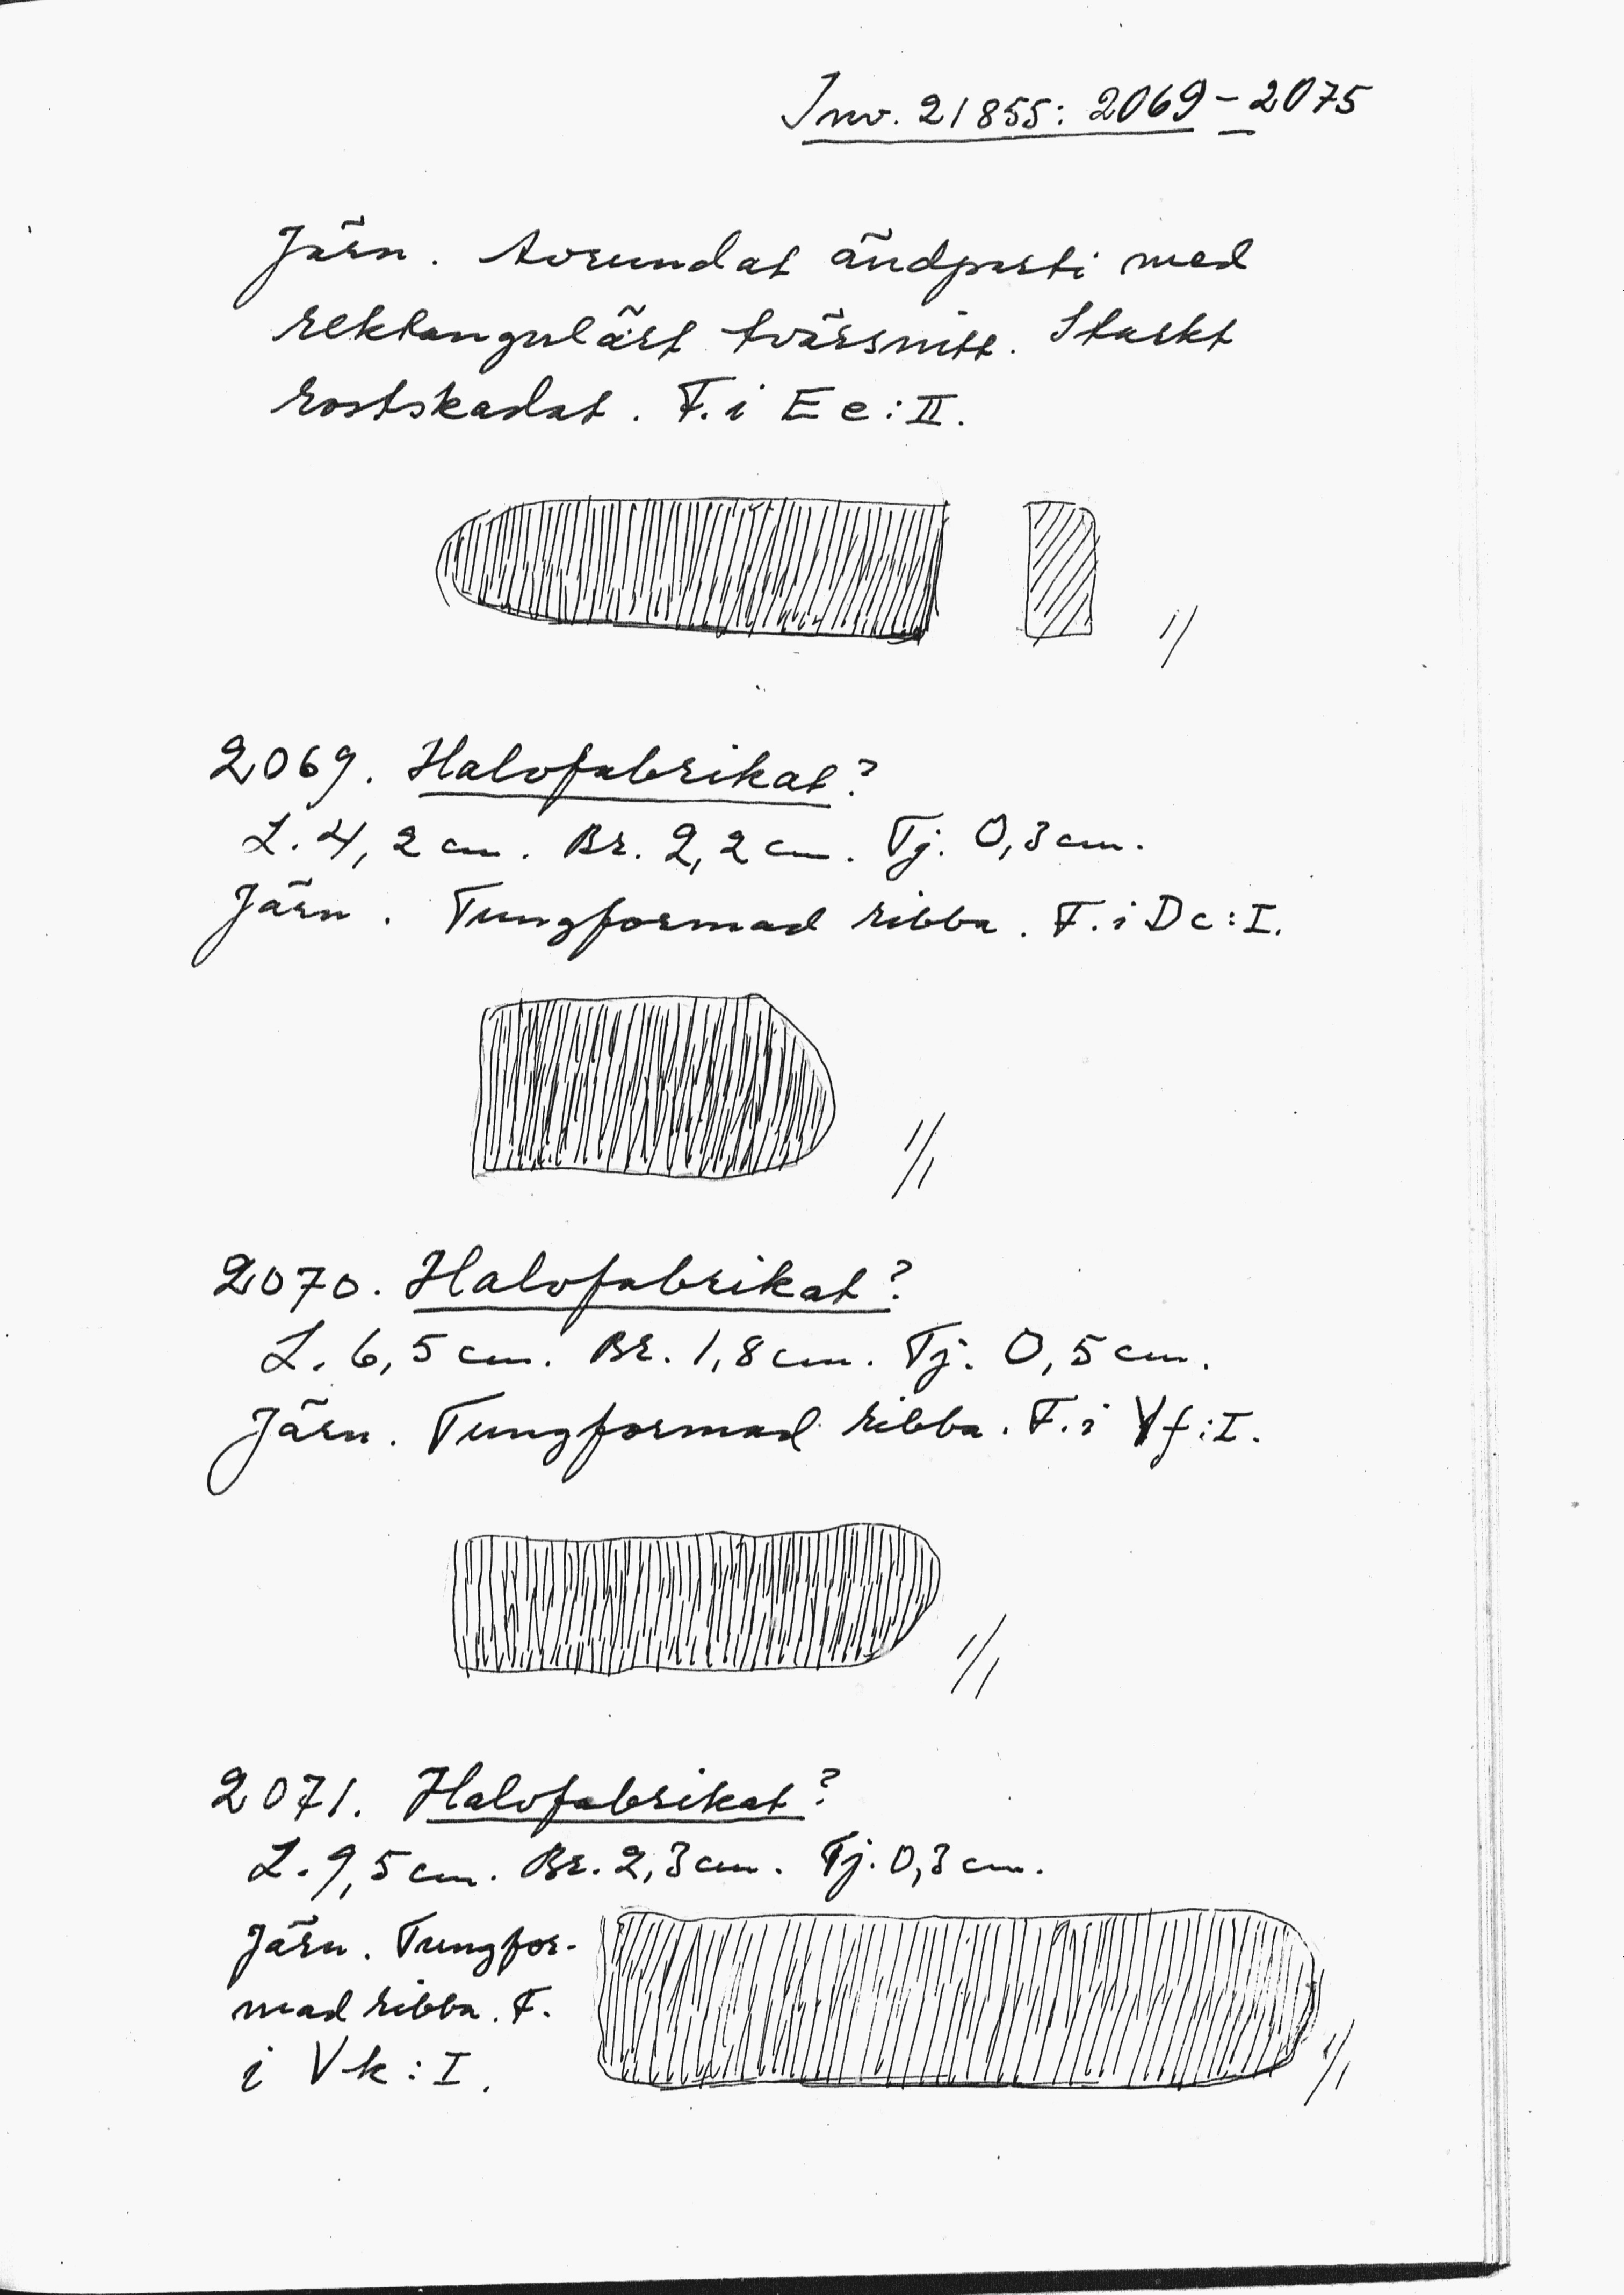 Inv. 21855: 2069-2075
Järn. Avrundat ändparti med
rektangulärt tvärsnitt. Starkt
rostskadat. F. i Ee:II.
1/
2069. Halvfabrikat?
L. 4,2 cm. Br. 2,2 cm. Tj. 0,3 cm.
Järn. Tungformad ribba. F. i Dc:I.
1/1
2070. Halvfabrikat?
L. 6,5 cm. Br. 1,8 cm. Tj. 0,5 cm.
Järn. Tungformad ribba. F. i Vf:I.
1/1
2071. Halvfabrikat?
L. 9,5 cm. Br. 2,3 cm. Tj. 0,3 cm.
Järn. Tungfor-
mad ribba. F.
i Vk:I.
1/1